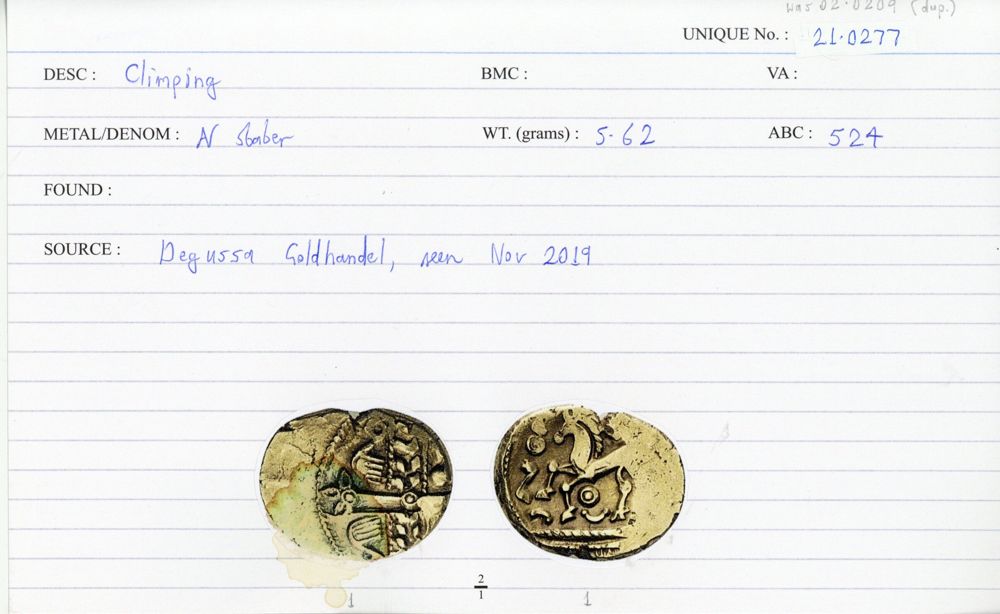 was 02.0209 (dup.)
UNIQUE No. : 21.0277
DESC : Climping BMC : VA :
METAL/DENOM : N stater WT. (grams) : 5.62 ABC : 524
FOUND :
SOURCE : Degussa Goldhandel, seen Nov 2019
2
1
1 1